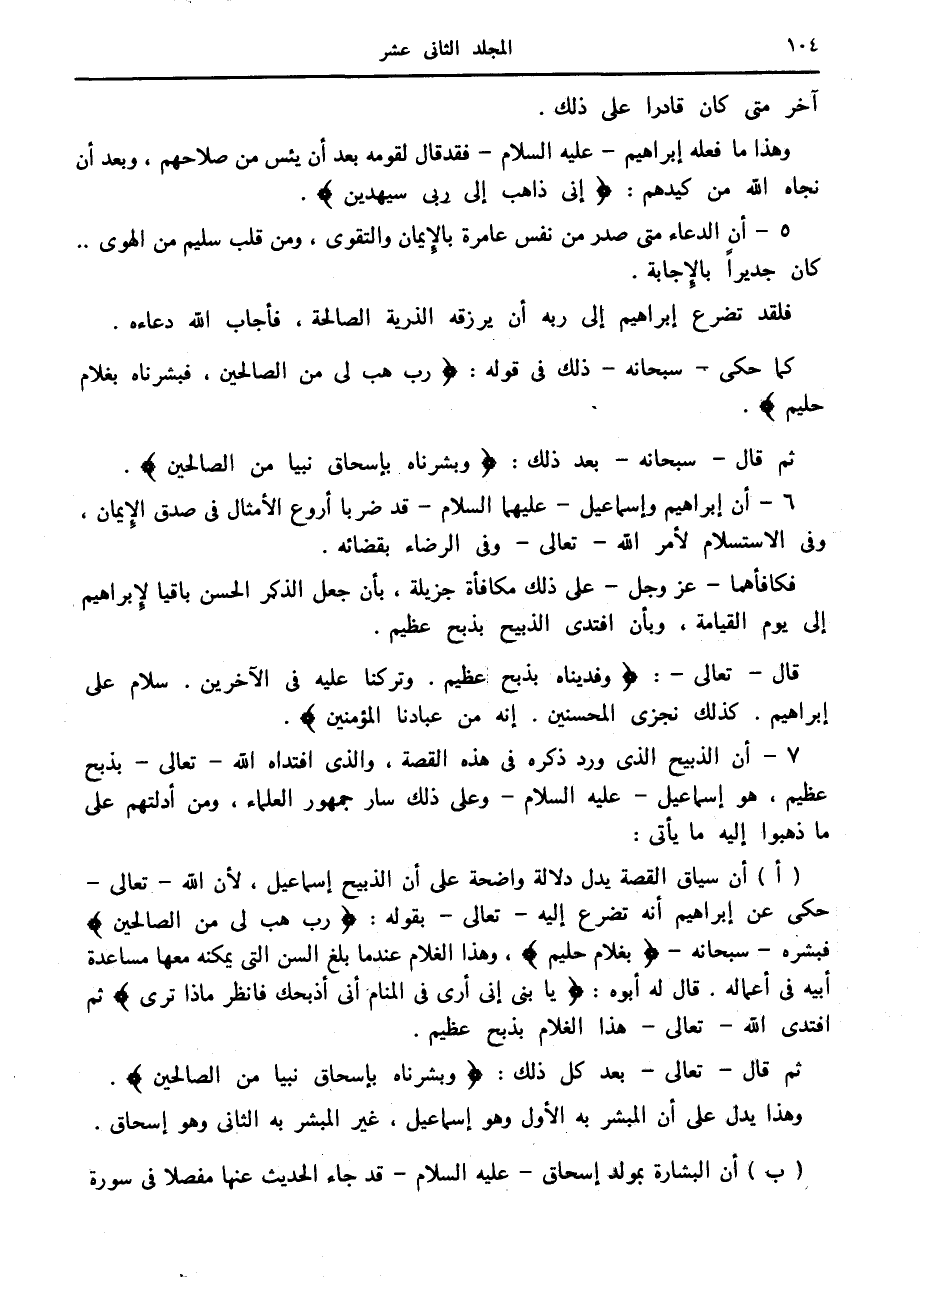 ١٠٤ المجلد الثانى عشر
آخر متى كان قادرا على ذلك .
وهذا ما فعله إبراهيم – عليه السلام – فقدقال لقومه بعد أن يئس من صلاحهم ، وبعد أن
نجاه الله من كيدهم : ﴿ إنى ذاهب إلى ربى سيهدين ﴾ .
٥ – أن الدعاء متى صدر من نفس عامرة بالإيمان والتقوى ، ومن قلب سليم من الهوى ..
كان جديراً بالإجابة .
فلقد تضرع إبراهيم إلى ربه أن يرزقه الذرية الصالحة ، فأجاب الله دعاءه .
كما حكى – سبحانه – ذلك فى قوله : ﴿ رب هب لى من الصالحين ، فبشرناه بغلام
حليم ﴾ .
ثم قال – سبحانه – بعد ذلك : ﴿ وبشرناه بإسحاق نبيا من الصالحين ﴾ .
٦ – أن إبراهيم وإسماعيل – عليهما السلام – قد ضربا أروع الأمثال فى صدق الإيمان ،
وفى الاستسلام لأمر الله – تعالى – وفى الرضاء بقضائه .
فكافأهما – عز وجل – على ذلك مكافأة جزيلة ، بأن جعل الذكر الحسن باقيا لإبراهيم
إلى يوم القيامة ، وبأن افتدى الذبيح بذبح عظيم .
قال – تعالى – : ﴿ وفديناه بذبح عظيم . وتركنا عليه فى الآخرين . سلام على
إبراهيم . كذلك نجزى المحسنين . إنه من عبادنا المؤمنين ﴾ .
٧ – أن الذبيح الذى ورد ذكره فى هذه القصة ، والذى افتداه الله – تعالى – بذبح
عظيم ، هو إسماعيل – عليه السلام – وعلى ذلك سار جمهور العلماء ، ومن أدلتهم على
ما ذهبوا إليه ما يأتى :
( أ ) أن سياق القصة يدل دلالة واضحة على أن الذبيح إسماعيل ، لأن الله – تعالى –
حكى عن إبراهيم أنه تضرع إليه – تعالى – بقوله : ﴿ رب هب لى من الصالحين ﴾
فبشره – سبحانه – ﴿ بغلام حليم ﴾ ، وهذا الغلام عندما بلغ السن التى يمكنه معها مساعدة
أبيه فى أعماله . قال له أبوه : ﴿ يا بنى إنى أرى فى المنام أنى أذبحك فانظر ماذا ترى ﴾ ثم
افتدى الله – تعالى – هذا الغلام بذبح عظيم .
ثم قال – تعالى – بعد كل ذلك : ﴿ وبشرناه بإسحاق نبيا من الصالحين ﴾ .
وهذا يدل على أن المبشر به الأول وهو إسماعيل ، غير المبشر به الثانى وهو إسحاق .
( ب ) أن البشارة بمولد إسحاق – عليه السلام – قد جاء الحديث عنها مفصلا فى سورة